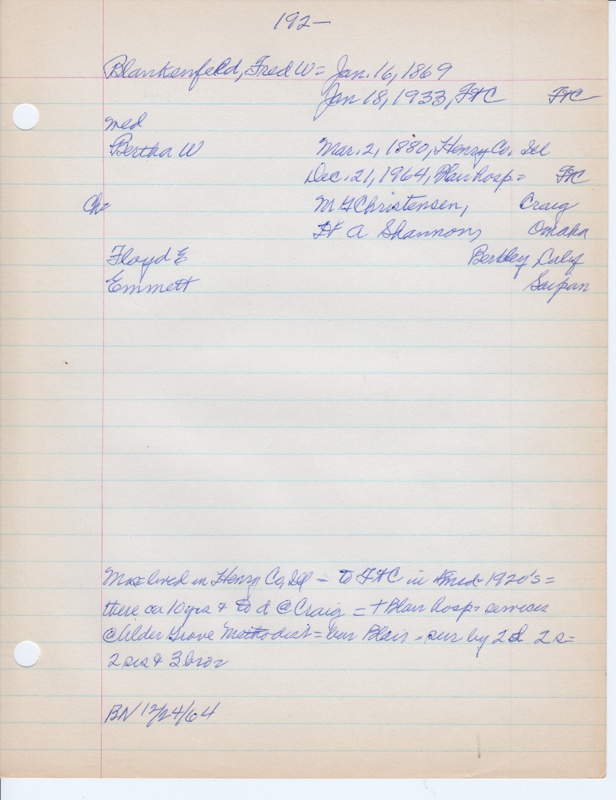 192-
Blankenfeld, Fred W = Jan. 16, 1869
Jan 18, 1933, FtC FtC
med
Bertha W Mar. 2, 1880, Henry Co. Ill
Dec. 21, 1964, Blair hosp = FtC
Ch= M F Christensen, Craig
H A Shannon, Omaha
Floyd E Berkley Calif
Emmett Saipan
lived in Henry Co, Ill = to FtC in 1920's =
there ca 10 yrs & to d @ Craig = + Blair hosp = services
@ Alder Grove Methodist = bur Blair - sur by 2 d 2 s =
2 sis & 3 bror
BN 12/24/64